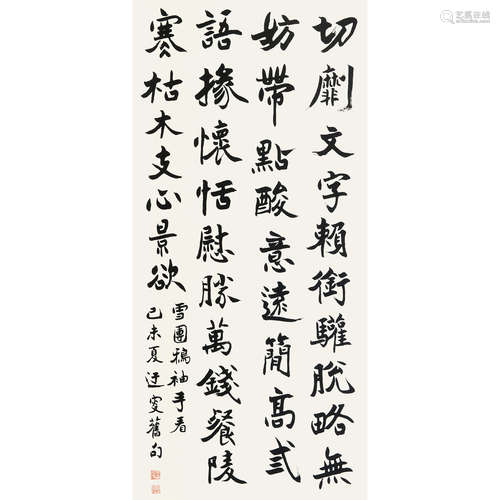 切劘文字賴銜驩脫略無
妨帶點酸意遠簡高弍
語掾懷恬慰勝萬錢餐陵
寒枯木支心景欲
雪團鵶袖手看
己未夏迂叟舊句